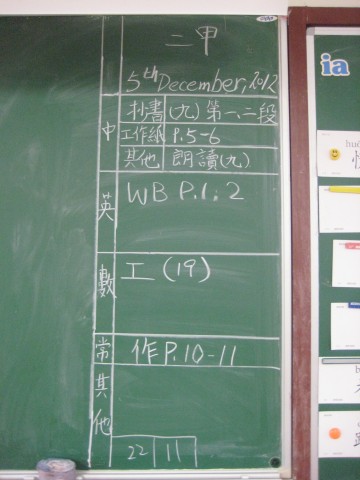 二甲
5th December, 2012
中
抄書(九)第一、二段
工作紙 P.5-6
其他 朗讀(九)
英
WB P.1, 2
數
工(19)
常
作P.10-11
其他
22 11
ia